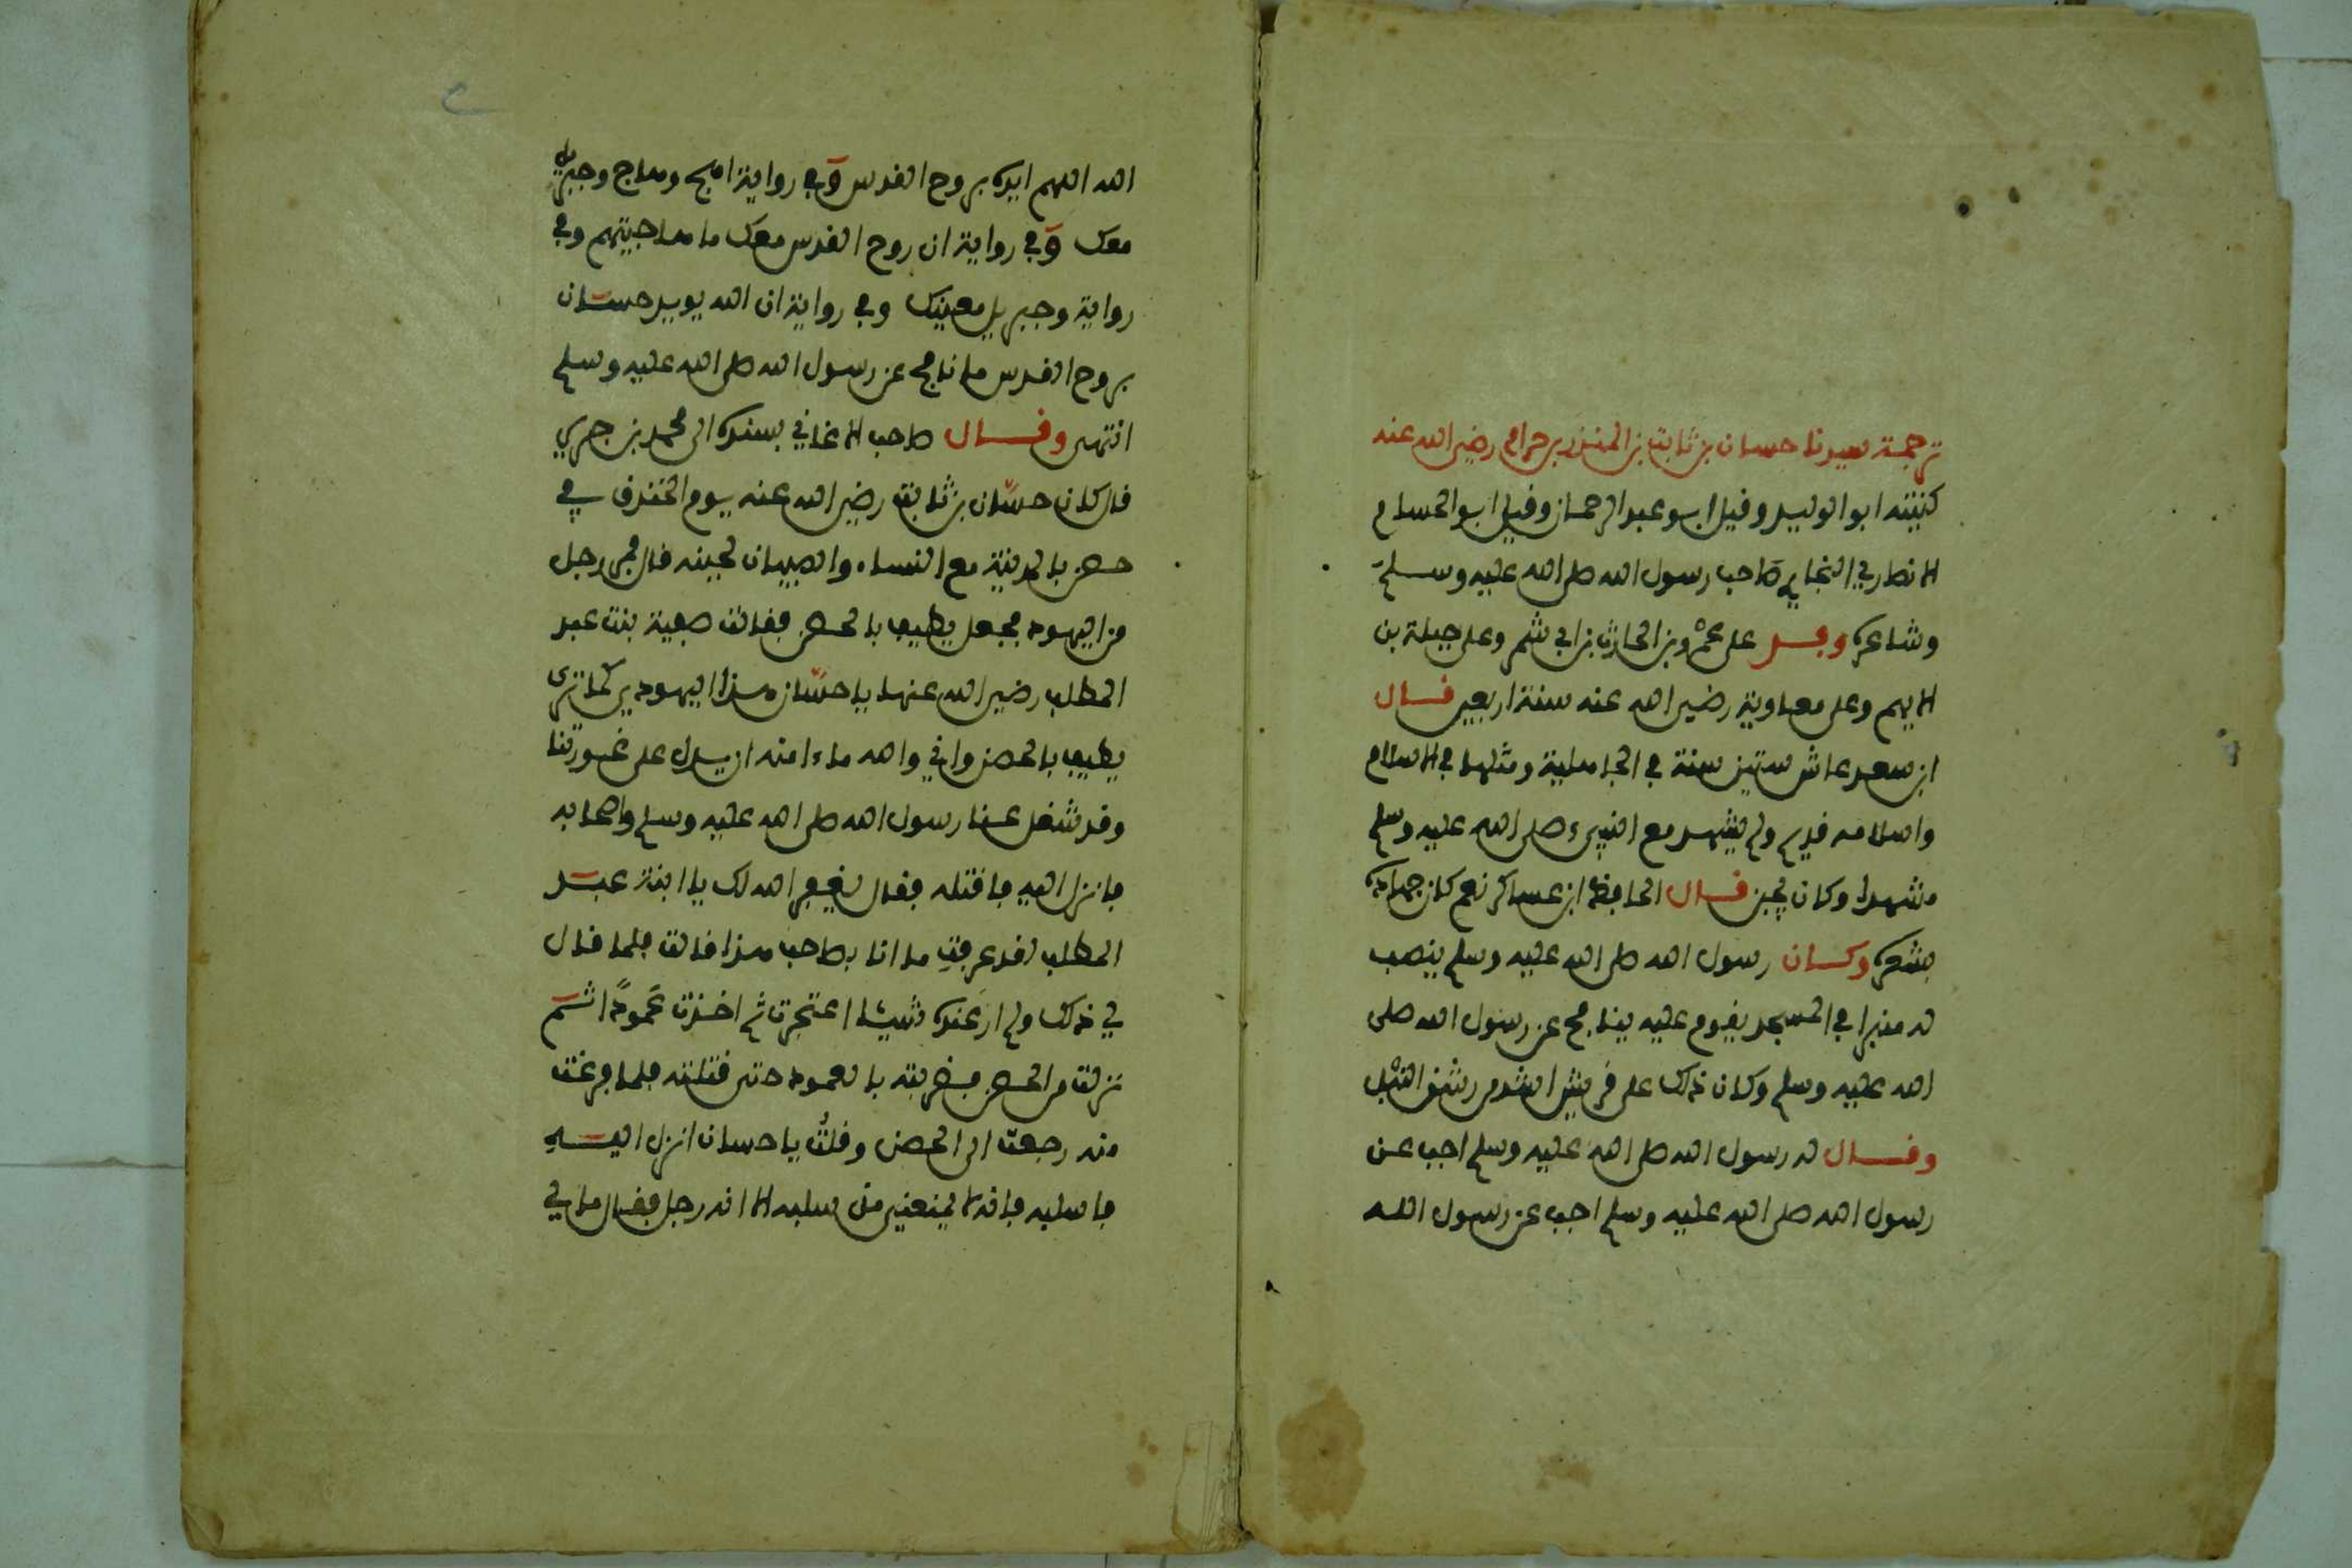 ترجمة سيدنا حسان بن ثابت بن المنذر بن حرام رضي الله عنه
كنيته ابو الوليد وقيل ابو عبد الرحمان وقيل ابو الحسام
الانصاري النجاري صاحب رسول الله صلى الله عليه وسلم
وشاعره وفد على عمرو بن الحارث بن ابي شمر وعلى جبلة بن
الايهم وعلى معاوية رضي الله عنه سنة اربعين قال
ابن سعد عاش ستين سنة في الجاهلية ومثلها في الاسلام
واسلامه قديم ولم يشهد مع النبيء صلى الله عليه وسلم
مشهدا وكان يجبن قال الحافظ ابن عساكر نعم كان جهاده
بشعره وكان رسول الله صلى الله عليه وسلم ينصب
له منبرا في المسجد يقوم عليه ينافح عن رسول الله صلى
الله عليه وسلم وكان ذلك على قريش اشد من رشق النبل
وقال له رسول الله صلى الله عليه وسلم اجب عن
رسول الله صلى الله عليه وسلم اجب عن رسول الله
الله اللهم ايده بروح القدس وفي رواية اهج وهاج وجبريل
معك وفي رواية ان روح القدس معك ما هاجيتهم وفي
رواية وجبريل معينك وفي رواية ان الله يويد حسان
بروح القدس ما نافح عن رسول الله صلى الله عليه وسلم
انتهى وقال صاحب الاغاني بسنده الى محمد بن جرير
قال كان حسان بن ثابت رضي الله عنه يوم الخندق في
حصن بالمدينة مع النساء والصبيان لجبنه قال فمر رجل
من اليهود فجعل يطيف بالحصن فقالت صفية بنت عبد
المطلب رضي الله عنها يا حسان هذا اليهودي كما ترى
يطيف بالحصن واني والله ما ءامنه ان يدل على عورتنا
وقد شغل عنا رسول الله صلى الله عليه وسلم واصحابه
فانزل اليه فاقتله فقال يغفر الله لك يا ابنة عبد
المطلب لقد عرفت ما انا بصاحب هذا قالت فلما قال
لي ذلك ولم ار عنده شيئا اعتجرت ثم اخذت عمودا ثم
نزلت من الحصن فضربته بالعمود حتى قتلته فلما فرغت
منه رجعت الى الحصن وقلت يا حسان انزل اليه
فاسلبه فانه لم يمنعني من سلبه الا انه رجل فقال ما لي